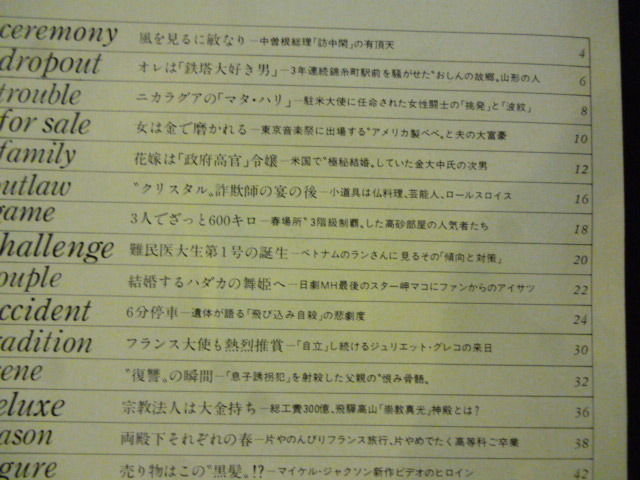 ceremony 風を見るに敏なり—中曽根総理「訪中閣」の有頂天 4
dropout オレは「鉄塔大好き男」—3年連続錦糸町駅前を騒がせた〝おしんの故郷〟山形の人 6
trouble ニカラグアの「マタ・ハリ」—駐米大使に任命された女性闘士の「挑発」と「波紋」 8
for sale 女は金で磨かれる—東京音楽祭に出場する〝アメリカ製べべ〟と夫の大富豪 10
family 花嫁は「政府高官」令嬢—米国で〝極秘結婚〟していた金大中氏の次男 12
outlaw 〝クリスタル〟詐欺師の宴の後—小道具は仏料理、芸能人、ロールスロイス 16
game 3人でざっと600キロ—春場所〝3階級制覇〟した高砂部屋の人気者たち 18
challenge 難民医大生第1号の誕生—ベトナムのランさんに見るその「傾向と対策」 20
ouple 結婚するハダカの舞姫へ—日劇MH最後のスター岬マコにファンからのアイサツ 22
ccident 6分停車—遺体が語る「飛び込み自殺」の悲劇度 24
radition フランス大使も熱烈推賞—「自立」し続けるジュリエット・グレコの来日 30
ene 〝復讐〟の瞬間—「息子誘拐犯」を射殺した父親の〝恨み骨髄〟 32
eluxe 宗教法人は大金持ち—総工費300億、飛騨高山「崇教真光」神殿とは? 36
ason 両殿下それぞれの春—片やのんびりフランス旅行、片やめでたく高等科ご卒業 38
gure 売り物はこの〝黒髪〟!?—マイケル・ジャクソン新作ビデオのヒロイン 42